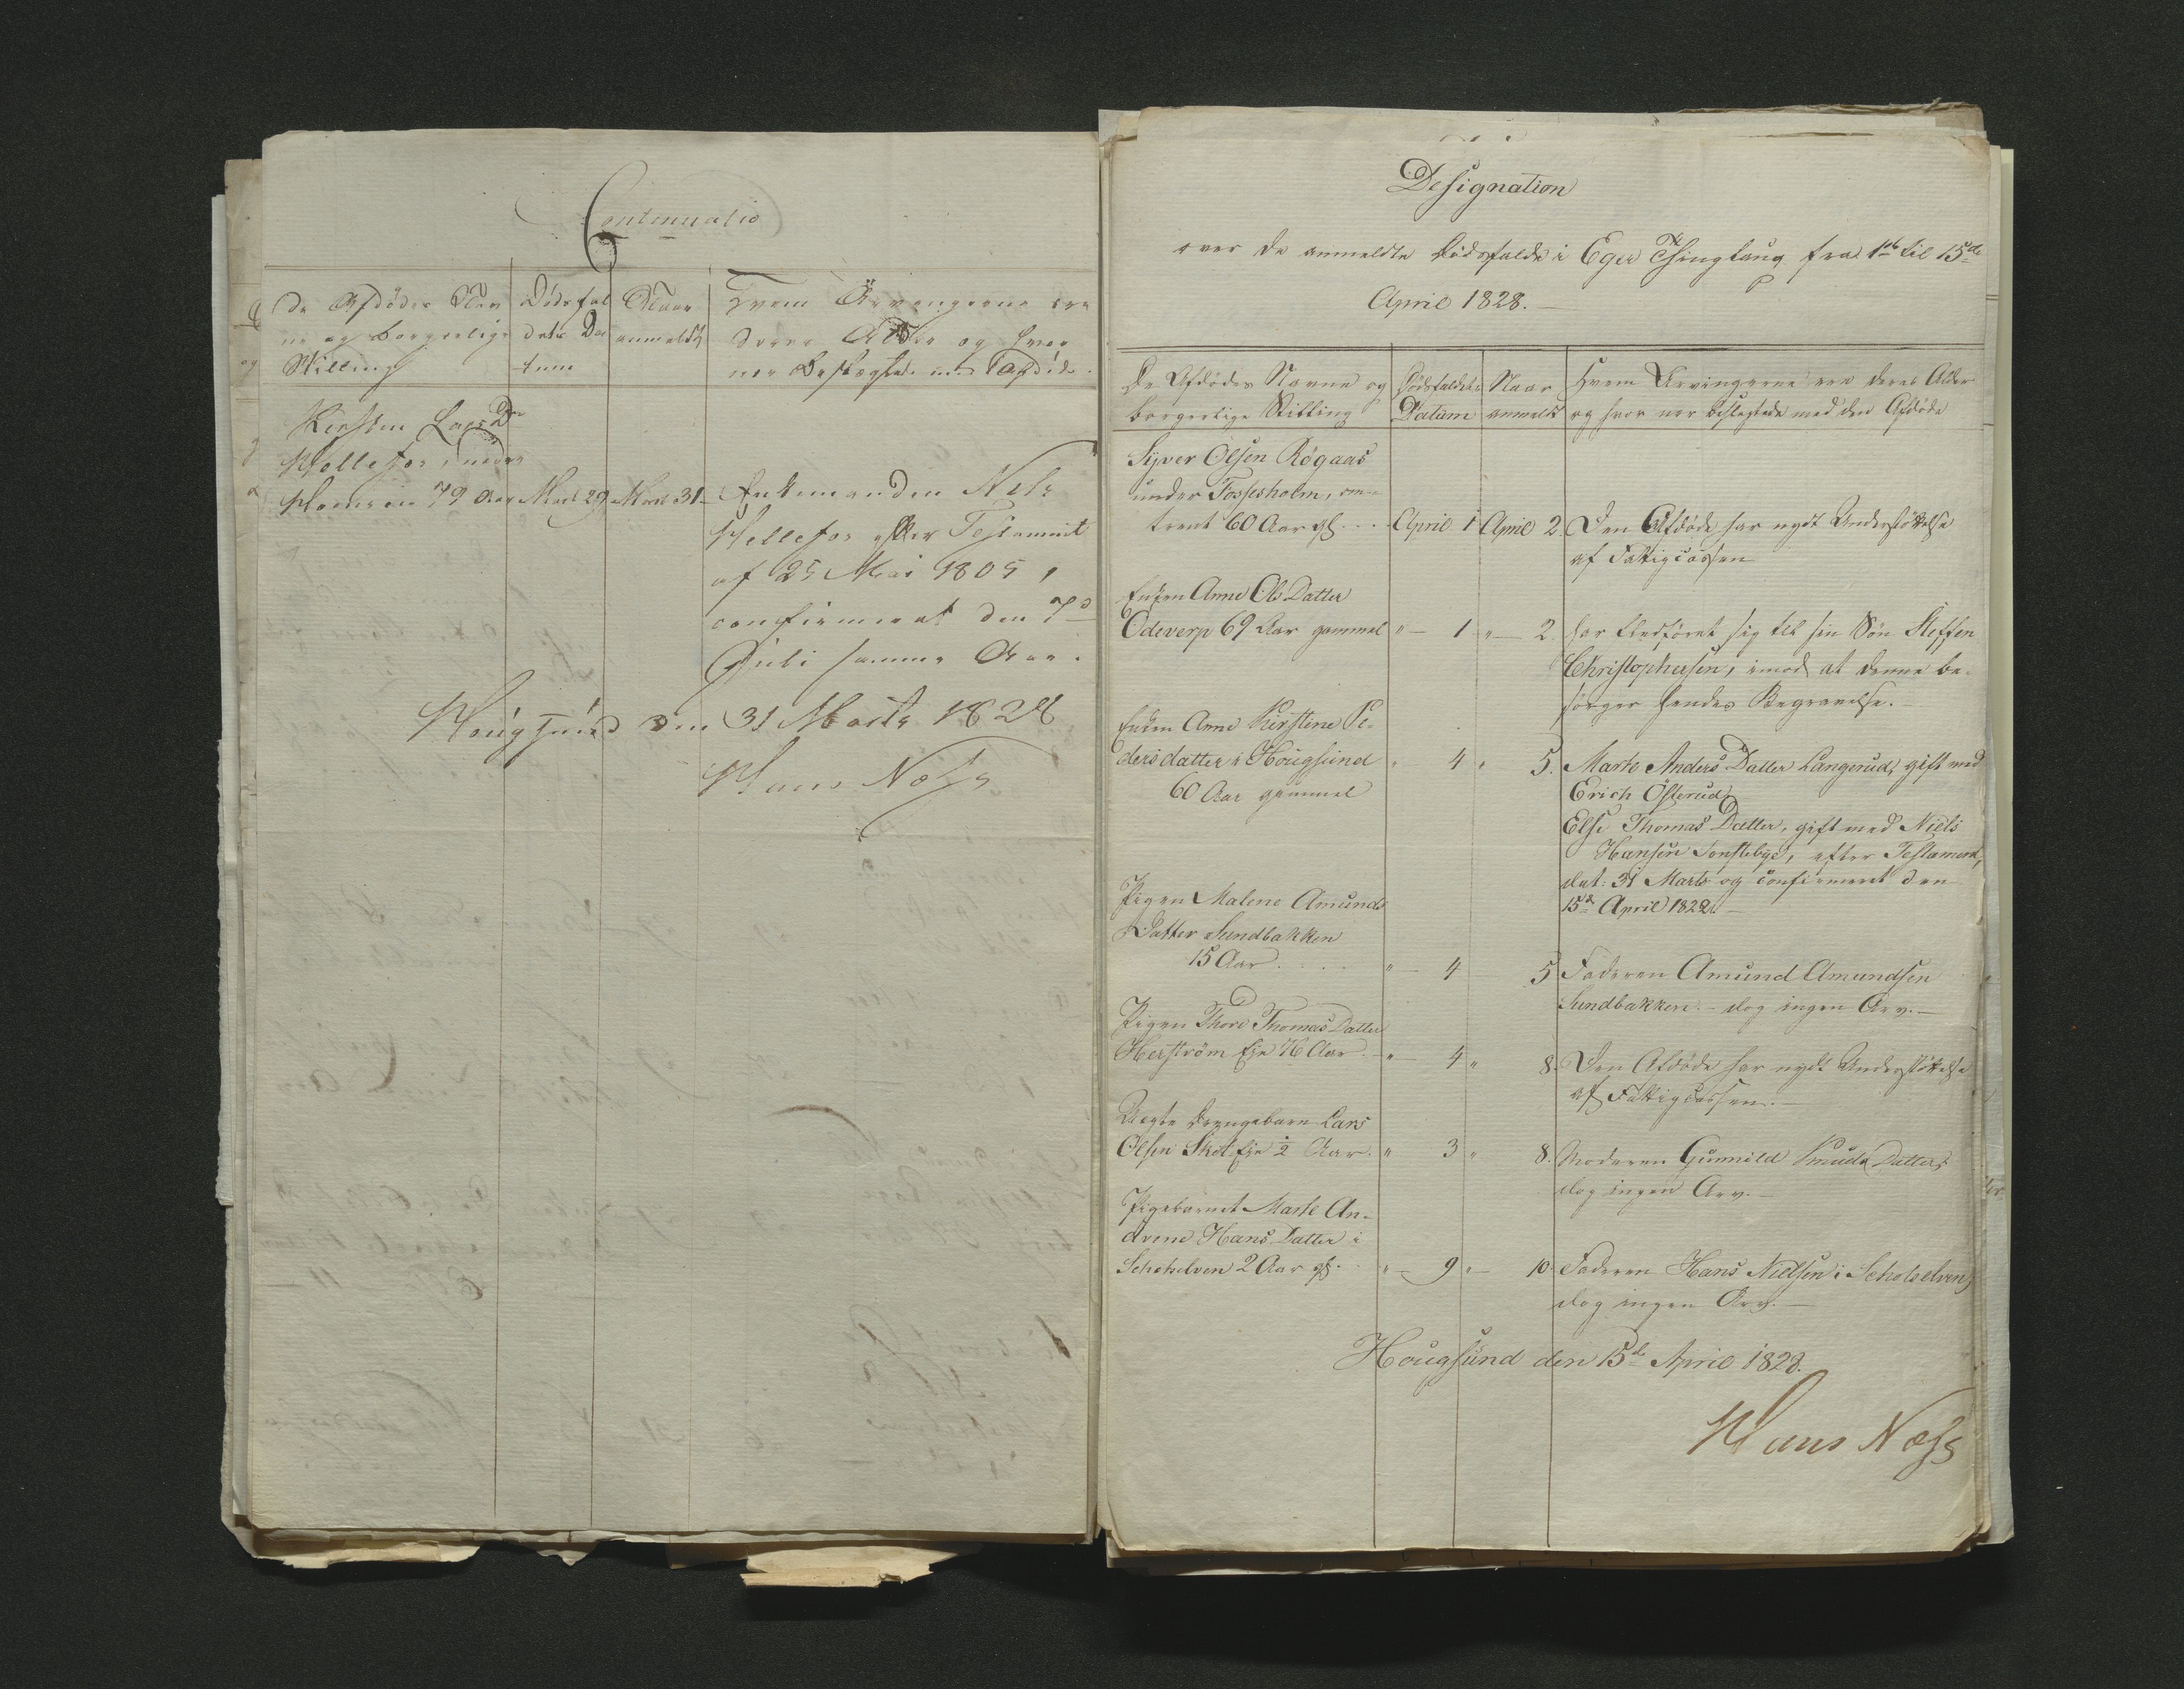 Continuatio
De Afdødes Nav
ne og borgerlige
Stilling
Dødsfal
dets Da
tum
Naar
anmeldt
Hvem Arvingerne ere
deres Alder og hvor
nær Beslægtede med Afdøde
Kirsten Lars Dr
Hellefos, nedre
79 Aar
Mart 29
Marts 31
Enkemanden Niels
Hellefos efter Testament
af 25 Mai 1805,
confirmeret den 7d
Juli samme Aar.
Hougsund den 31 Marts 1828
Hans Næss
Designation
over de anmeldte Dødsfalde i Eger Thinglaug fra 1ste til 15de
April 1828.
De Afdødes Navne og
borgerlige Stilling
Dødsfaldets
Datum
Naar
anmeldt
Hvem Arvingerne ere deres Alder
og hvor nær beslægtede med den Afdøde
Syver Olsen Røgaas
under Fossesholm, om-
trent 60 Aar gl. April 1 April 2. Den Afdøde har nydt Understøttelse
af Fattigcassen
Enken Anne Ols Datter
Odeverp 69 Aar gammel " - 1 " - 2. har fledføret sig til sin Søn Steffen
Christophersen, imod at denne be-
sørger hendes Begravelse. -
Enken Anne Kirstine Pe-
dersdatter i Hougsund " 4 " 5. Marte Anders Datter Langerud, gift med
60 Aar gammel
Erich Østerud
Else Thomas Datter, gift med Niels
Hansen Tonstebye, efter Testament,
dat: 31 Marts og confirmeret den
15de April 1822. -
Pigen Malene Amunds
Datter Sundbakken
15 Aar. . . . " - 4 5 Faderen Amund Amundsen
Sundbakken. - dog ingen Arv. -
Pigen Thore Thomas Datter
Herstrøm Eje 76 Aar. - " - 4 " 8. Den Afdøde har nydt Understøttelse
af Fattigcassen. -
Uegte Drengebarn Lars
Olsen Skotseje ½ Aar. " 3 " 8. Moderen Gunnild Knuds Datter,
dog ingen Arv. -
Pigebarnet Marte An-
drene Hans Datter i
Schotselven 2 Aar gl. " - 9 " - 10. Faderen Hans Nielsen i Schotselven,
dog ingen Arv. -
Hougsund den 15de April 1828.
Hans Næss